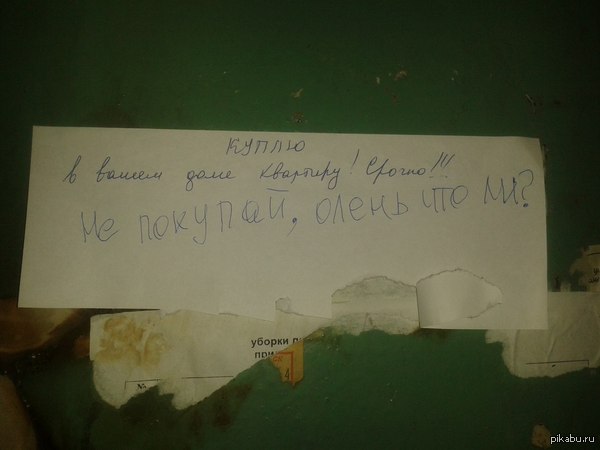 КУПЛЮ
в вашем доме квартиру! Срочно!!!
Не покупай, олень что ли?
уборки
при
4
pikabu.ru